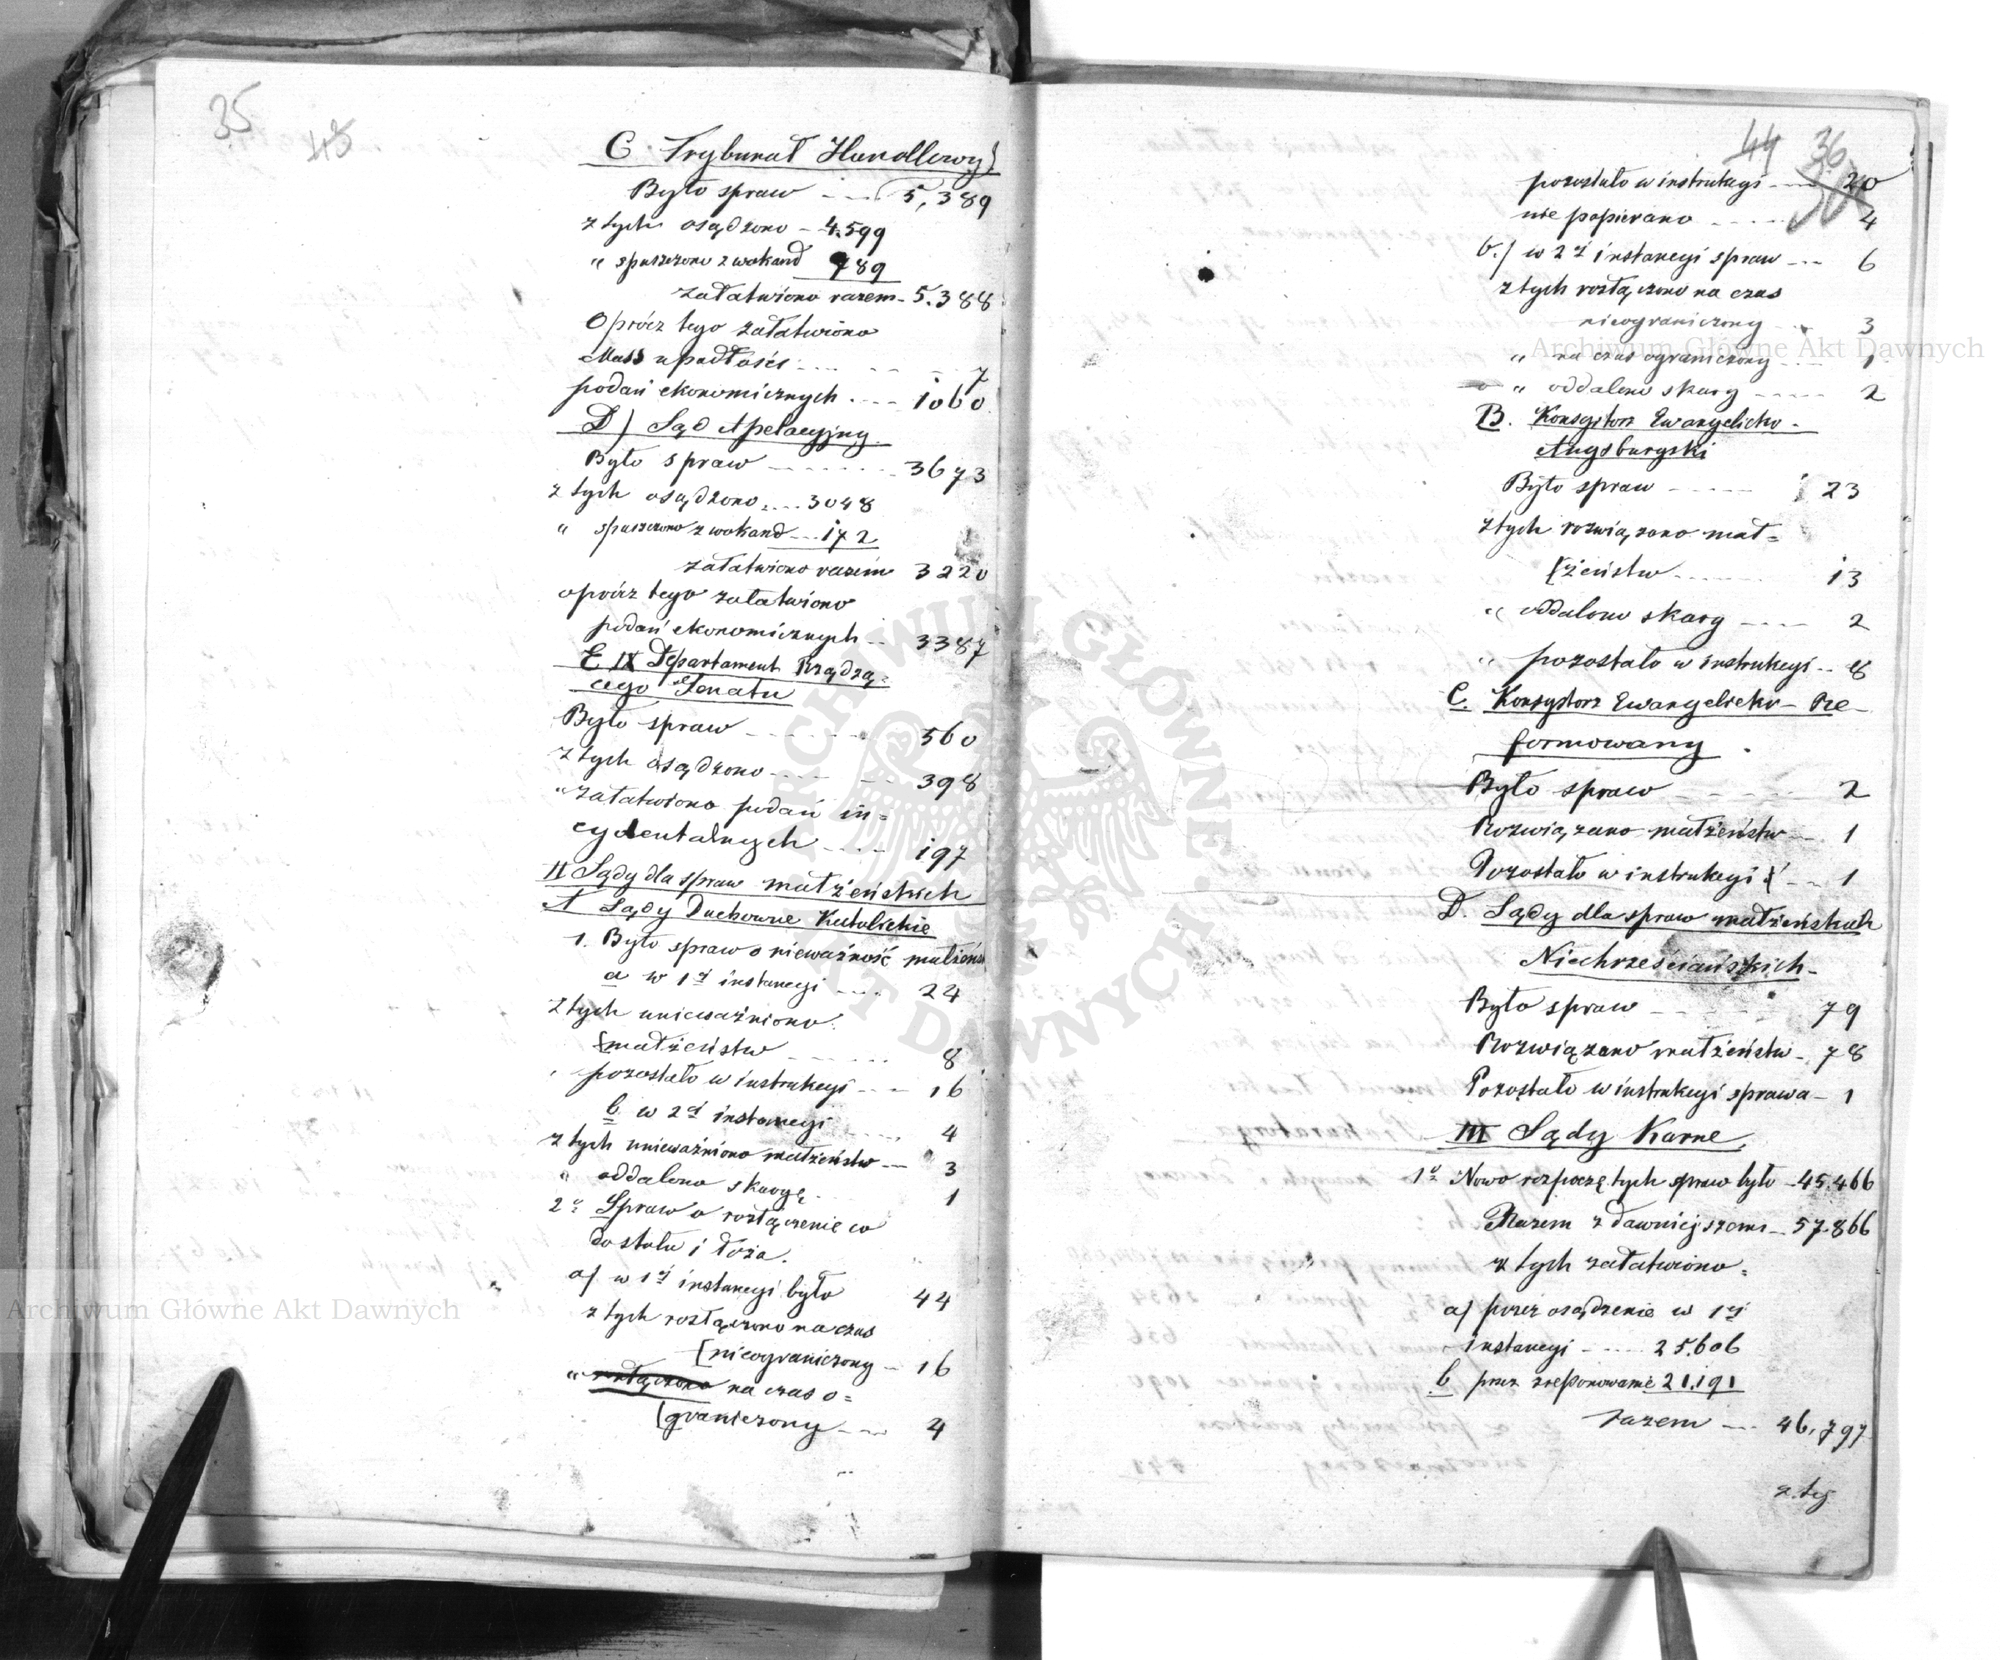 35
43
C. Trybunał Handlowy
Było spraw ---- 5,389
z tych osądzono - 4.599
" spuszczono z wokand 789
załatwiono razem - 5.388
Oprócz tego załatwiono
Mass upadłości ---- 7
podań ekonomicznych ---- 1060
D) Sąd Apelacyjny
Było spraw ------- 3673
z tych osądzono .... 3048
" spuszczono z wokand --- 172
załatwiono razem 3220
oprócz tego załatwiono
podań ekonomicznych -- 3387
E IX Departament Rządzą=
cego Senatu
Było spraw ------- 560
z tych osądzono ------ 398
" załatwiono podań in=
cydentalnych ---- 197
II Sądy dla spraw małżeńskich
A Sądy Duchowne Katolickie
1. Było spraw o nieważność małżeńs
a w 1éj instancyi ---- 24
z tych unieważniono
[małżeństw ------ 8
" pozostało w instrukcyi --- 16
b w 2éj instancyi ---- 4
z tych unieważniono małżeństw -- 3
" oddalono skargę - 1
2o Spraw o rozłączenie co
do stołu i łoża.
a/ w 1éj instancyi było 44
z tych rozłączono na czas
[nieograniczony - 16
" rozłączono na czas o=
[graniczony --- 4
44 36
pozostało w instrukcyi --- 20
nie popierano ----- 4
b./ w 2éj instancyi spraw --- 6
z tych rozłączono na czas
nieograniczony --- 3
" na czas ograniczony ---- 1
" oddalono skarg ----- 2
B. Konsystorz Ewangelicko-
Augsburgski
Było spraw ----- 23
z tych rozwiązano mał=
[żeństw ------ 13
" oddalono skarg ---- 2
" pozostało w instrukcyi -- 8
C. Konsystorz Ewangelicko-Re-
formowany
Było spraw ----- 2
Rozwiązano małżeństw -- 1
Pozostało w instrukcyi -- 1
D. Sądy dla spraw małżeńskich
Niechrześciańskich-
Było spraw ----- 79
Rozwiązano małżeństw - 78
Pozostało w instrukcyi sprawa - 1
III Sądy Karne
1o Nowo rozpoczętych spraw było - 45.466
Razem z dawniejszemi - 57.866
z tych załatwiono
a/ przez osądzenie w 1éj
instancyi ----- 25.606
b przez zreponowanie 21.191
razem --- 46,797
z tej
Archiwum Główne Akt Dawnych
Archiwum Główne Akt Dawnych
ARCHIWUM GŁÓWNE AKT DAWNYCH